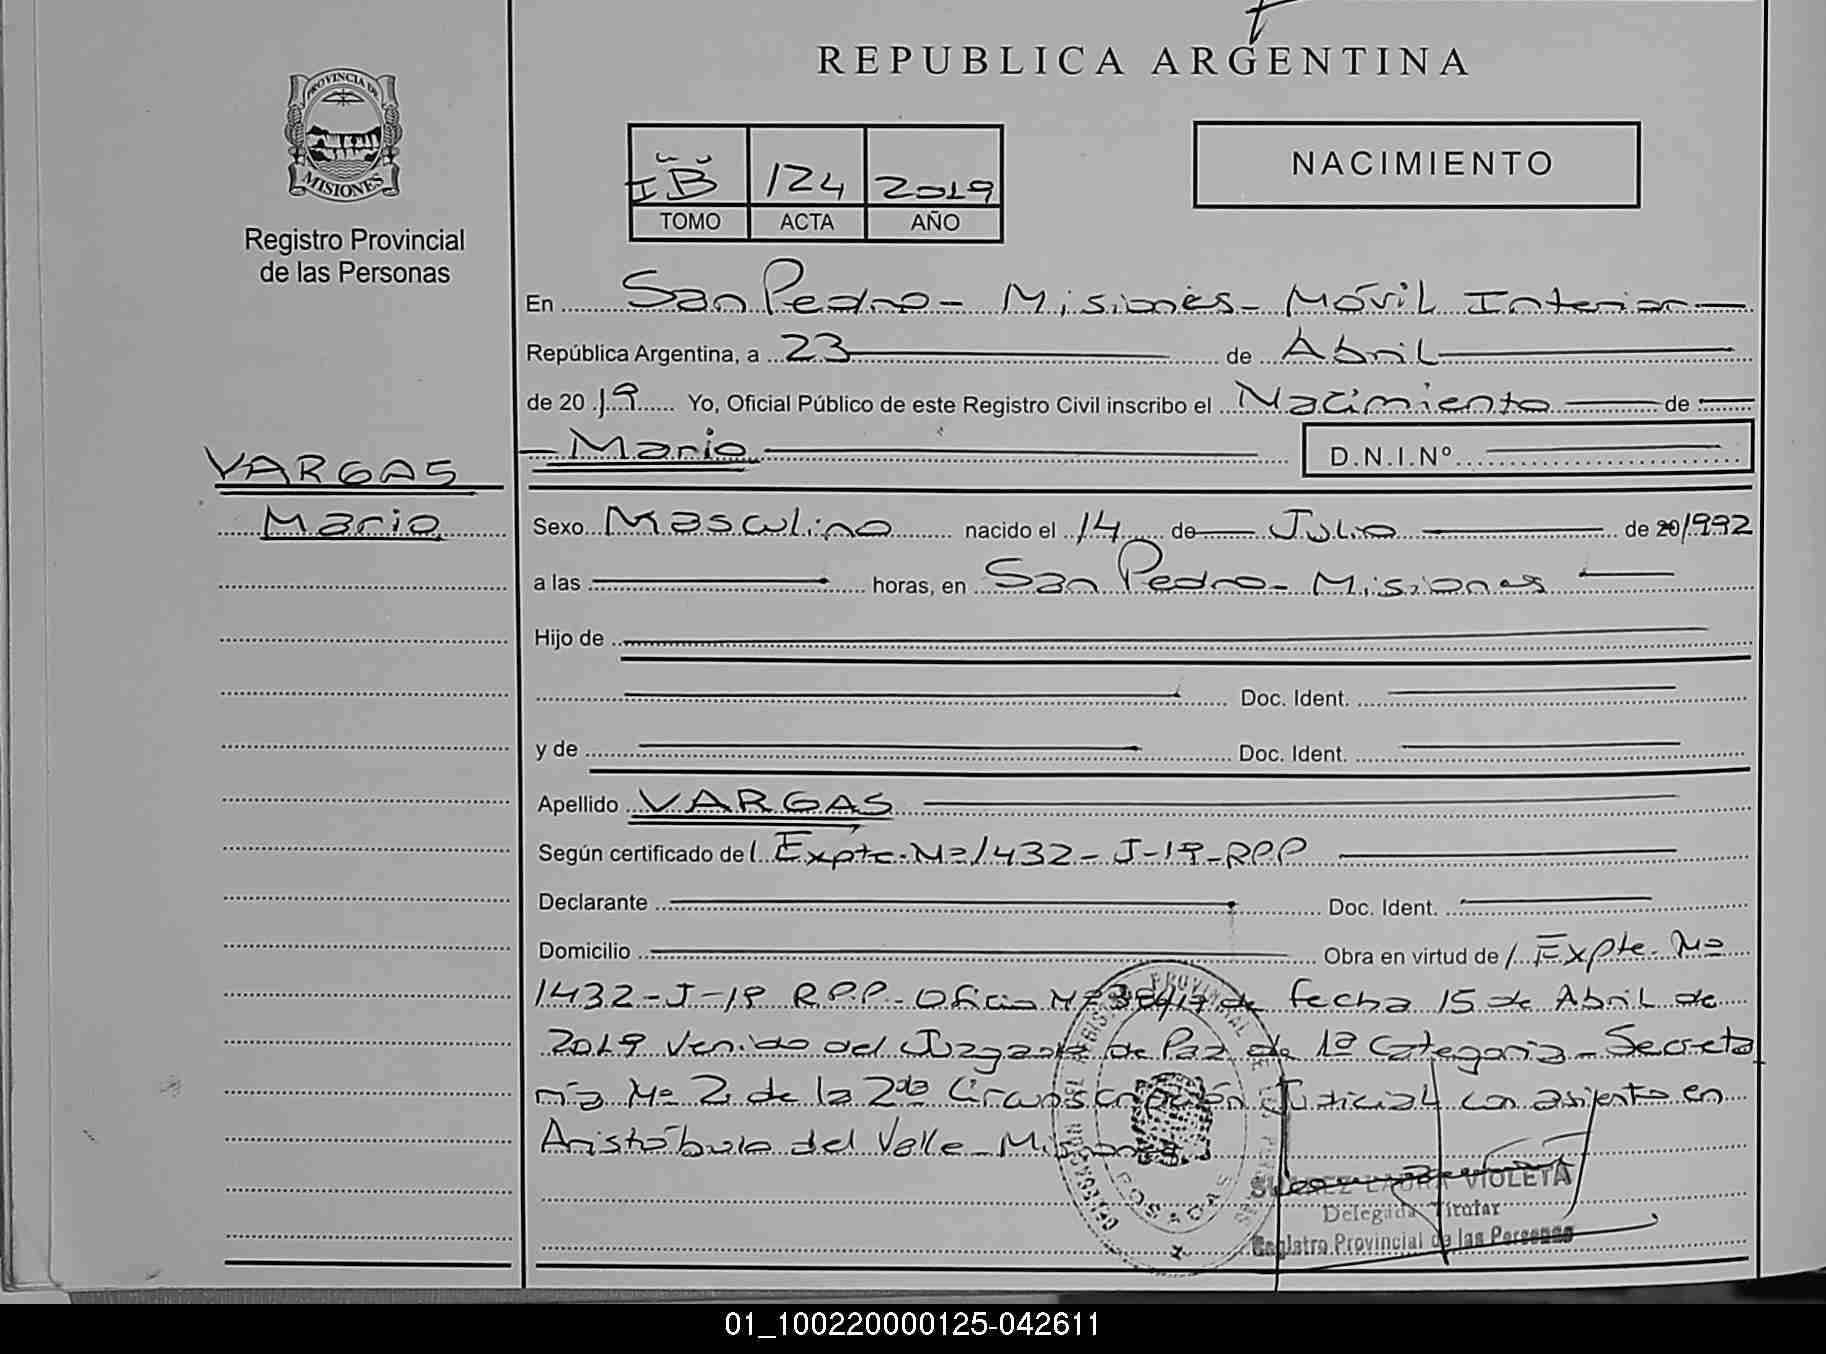 REPUBLICA ARGENTINA
PROVINCIA DE
MISIONES
Registro Provincial
de las Personas
IB 124 2019
TOMO ACTA AÑO
NACIMIENTO
En San Pedro - Misiones - Móvil Interior
República Argentina, a 23 de Abril
de 20 19 Yo, Oficial Público de este Registro Civil inscribo el Nacimiento de
Mario D.N.I.Nº
VARGAS
Mario
Sexo Masculino nacido el 14 de Julio de 20 1992
a las horas, en San Pedro - Misiones
Hijo de
Doc. Ident.
y de Doc. Ident.
Apellido VARGAS
Según certificado del Expte. Nº 1432 - J-19-RPP
Declarante Doc. Ident.
Domicilio Obra en virtud de / Expte. Nº
1432-J-19 R.P.P. - Oficio Nº de fecha 15 de Abril de
2019 Venido del Juzgado de Paz de 1º Categoria - Secreta
ría Nº 2 de la 2da Circunscripción Judicial con asiento en
Aristóbulo del Valle - Misiones
SUAREZ LAURA VIOLETA
Delegada Titular
Registro Provincial de las Personas
POSADAS
01_100220000125-042611